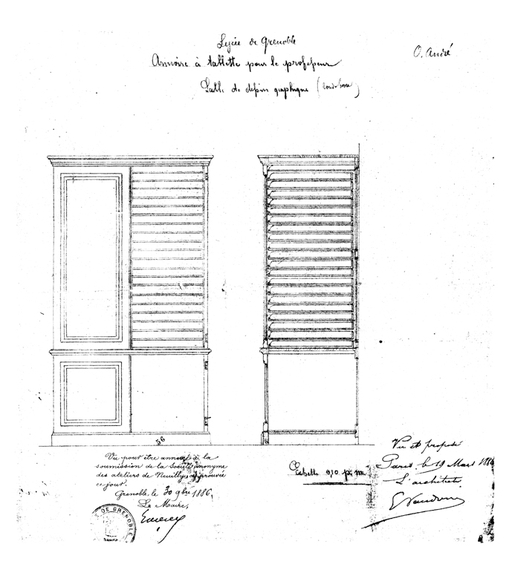 Lycée de Grenoble
O. André
Armoire à tablette pour le professeur
Salle de dessin graphique
56
Vu pour être annexé à la
soumission de la Société anonyme
des ateliers de Neuilly
ce jour.
Grenoble, le 30 9bre 1886,
Le Maire,
Echelle 0,10 p. m.
Vu et proposé
Paris le 19 Mars 1886
L'architecte
E Vaudremer
DE GRENOBLE